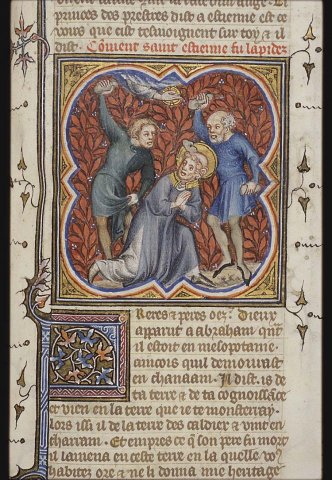 princes des prestres dist a estienne est ce
vous que cist tesmoignent sur toy & il
dist. Cōment saint estienne fu lapidez
Reres et peres oez: Dieux
apparut a abraham qūt
il estoit en mesopotame
ancois quil demourast
en chanaam. Il dist. is de
ta terre & de ta cognoissance
et vien en la terre que ie te monsterray
lors issi il de la terre des caldier & vint en
charram. Et empres ce qūt son pere fu mort
il lamena en ceste terre en la quelle vo⁹
habitez ore & ne li donna mie heritage